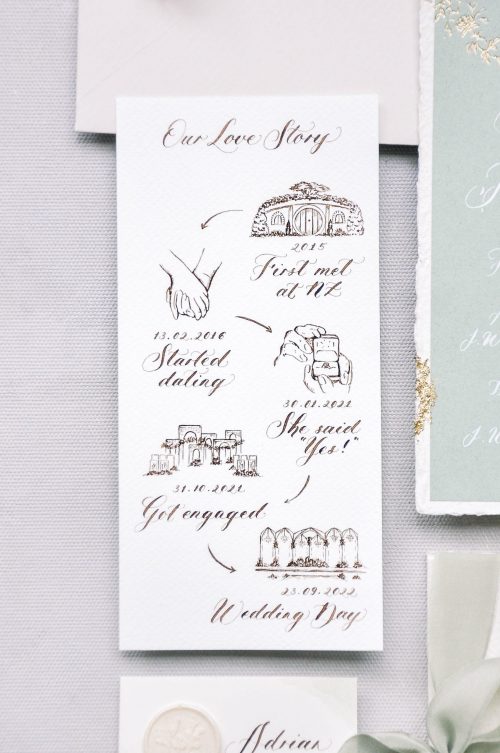 Our Love Story
2015
First met
at NZ
13.02.2016
Started
dating
30.01.2021
She said
"Yes!"
31.10.2021
Got engaged
23.09.2022
Wedding Day
Adrian